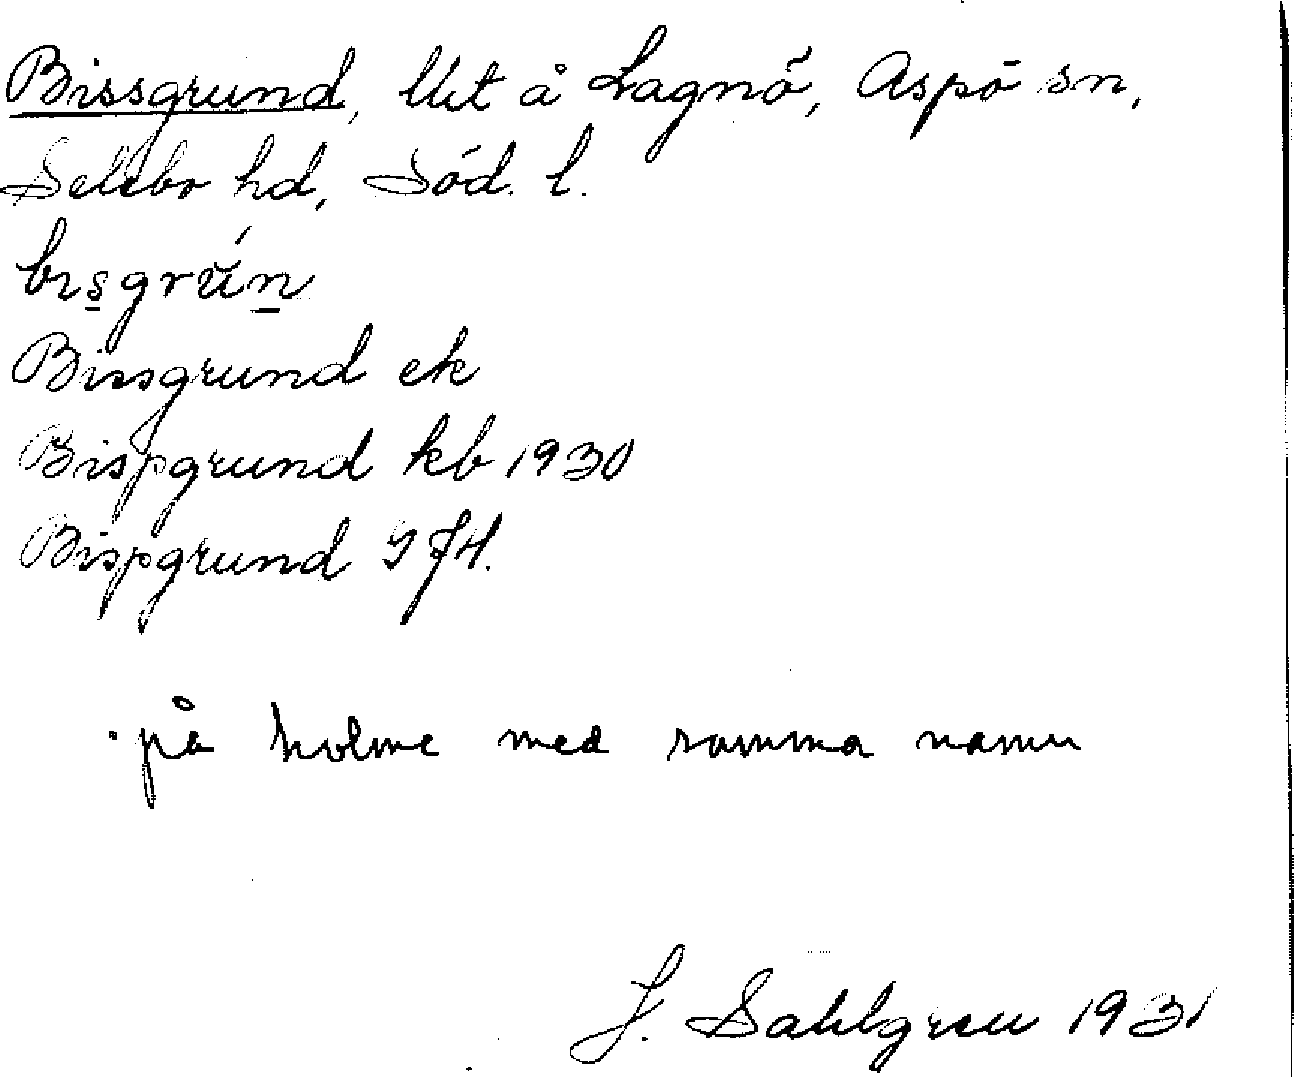 Bissgrund, lht å Lagnö, Aspö sn,
Selebo hd, Söd. l.
bısgrŭ́n
Bissgrund ek
Bispgrund kb 1930
Bispgrund JfH.
på holme med samma namn
J. Sahlgren 1931